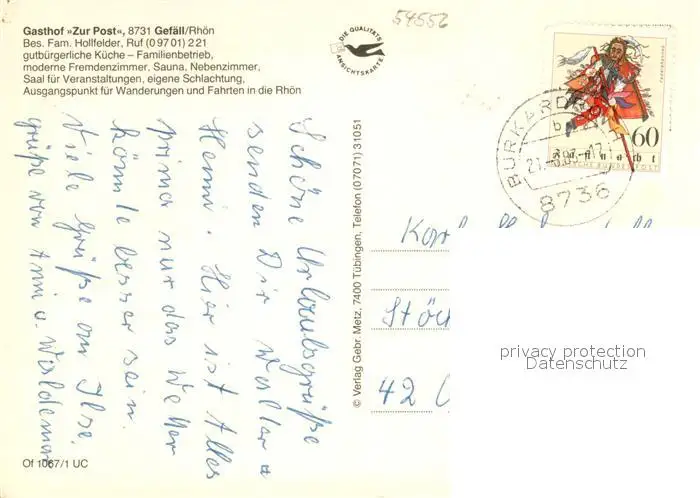 Gasthof »Zur Post«, 8731 Gefäll/Rhön
Bes. Fam. Hollfelder, Ruf (0 97 01) 2 21
gutbürgerliche Küche – Familienbetrieb,
moderne Fremdenzimmer, Sauna, Nebenzimmer,
Saal für Veranstaltungen, eigene Schlachtung,
Ausgangspunkt für Wanderungen und Fahrten in die Rhön
54556
DIE QUALITÄTS
ANSICHTSKARTE
60
Fastnacht
DEUTSCHE BUNDESPOST
8736
Schöne Urlaubsgrüße
senden Dir Walter u
Henni. Hier ist Alles
prima nur das Wetter
könnte besser sein.
Viele Grüße an Ilse.
grüße von Anni u. Waldemar
© Verlag Gebr. Metz, 7400 Tübingen, Telefon (07071) 31051
Stöc
42
privacy protection
Datenschutz
Of 1067/1 UC